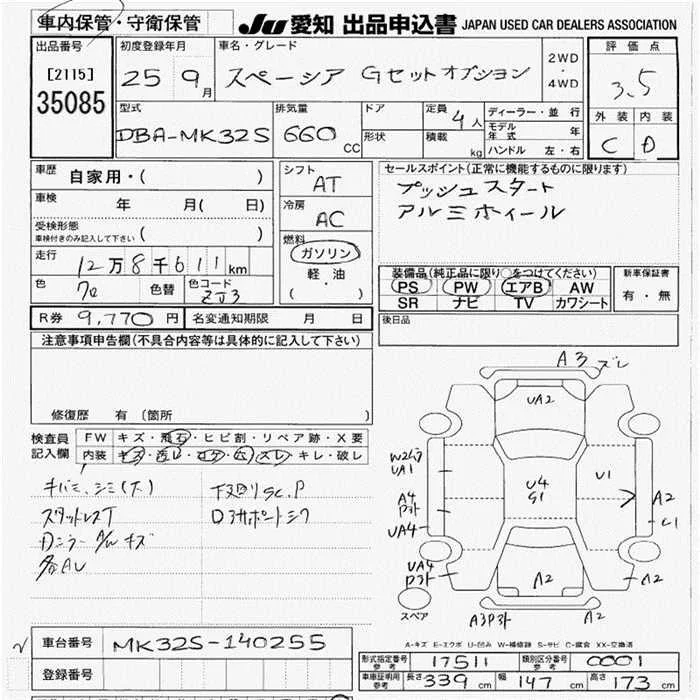 車内保管・守衛保管
JU 愛知 出品申込書 JAPAN USED CAR DEALERS ASSOCIATION
出品番号 [2115] 35085
初度登録年月 25 9月
車名・グレード スペーシア Gセットオプション
2WD・4WD
評価点 3.5
外装 C 内装 D
型式 DBA-MK32S
排気量 660 CC
ドア 形状
定員 4人 積載 kg
ディーラー・並行
モデル年式 年
ハンドル 左・右
車歴 自家用・( )
車検 年 月( 日)
受検形態 車検付きのみ記入して下さい ( )
走行 12万8千611km
色 色替 色コード ZJ3
シフト AT
冷房 AC
燃料 ガソリン 軽・油 ( ・ )
セールスポイント(正常に機能するものに限ります)
プッシュスタート
アルミホイール
装備品(純正品に限り○をつけてください)
PS PW エアB AW
SR ナビ TV カワシート
新車保証書 有・無
R券 9,770円 名変通知期限 月 日
後日品
注意事項申告欄(不具合内容等は具体的に記入して下さい)
修復歴 有 [箇所 ]
検査員記入欄
FW キズ・飛石・ヒビ割・リペア跡・X要
内装 キズ・汚レ・コゲ・穴・スレ・キレ・破レ
キバミ、シミ(大)
スタットレスT
各AU
下回りSC.P
A3 ズレ
UA2
UA1
U4
G1
U1
A4
UA4
A2
UA4
A2
A2
スペア
A2
A-キズ E-エクボ U-凹み W-補修跡 S-サビ C-腐食 XX-交換済
車台番号 MK32S-140255
登録番号
形式指定番号 参考 17511 類別区分番号 参考 0001
車庫証明用 参考 長さ 339 cm 幅 147 cm 高さ 173 cm